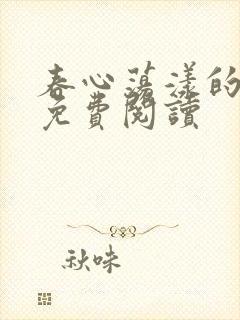 春心荡漾的
免費閱讀
秋味